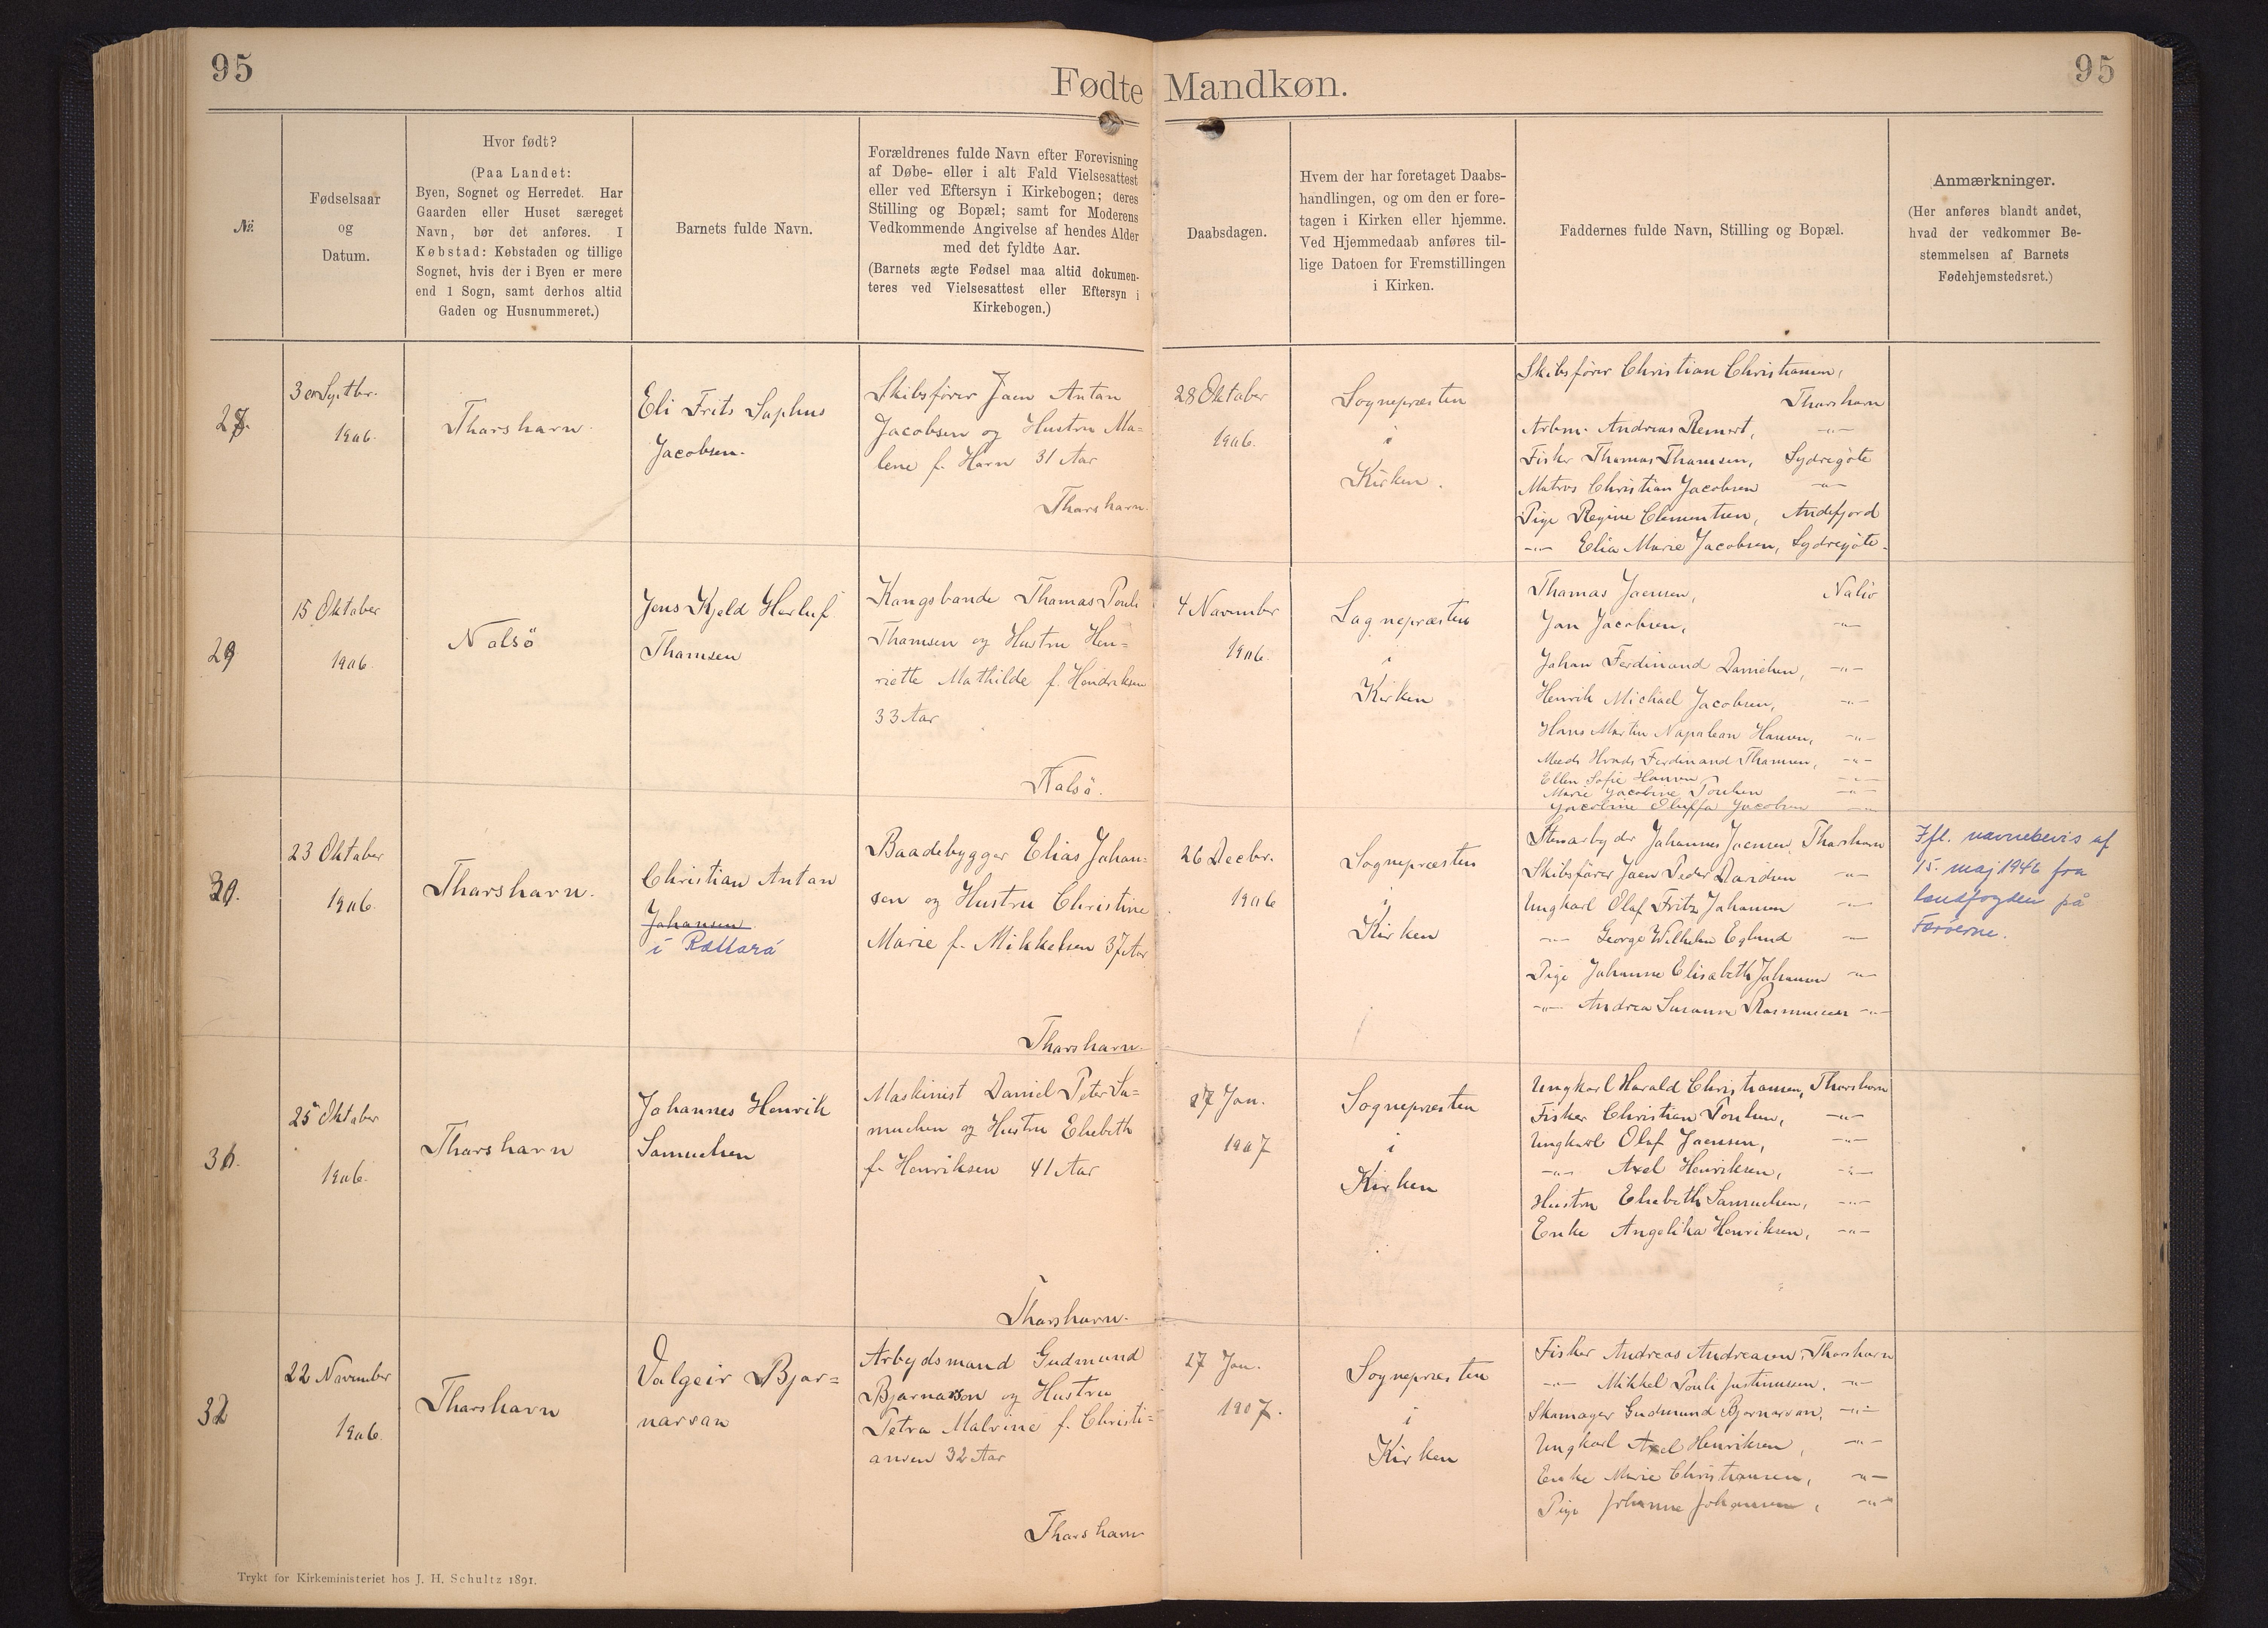 95
Fødte Mandkøn.
95
No.
Fødselsaar
og
Datum.
Hvor født?
(Paa Landet:
Byen, Sognet og Herredet. Har
Gaarden eller Huset særeget
Navn, bør det anføres. I
Købstad: Købstaden og tillige
Sognet, hvis der i Byen er mere
end 1 Sogn, samt derhos altid
Gaden og Husnummeret.)
Barnets fulde Navn.
Forældrenes fulde Navn efter Forevisning
af Døbe- eller i alt Fald Vielsesattest
eller ved Eftersyn i Kirkebogen; deres
Stilling og Bopæl; samt for Moderens
Vedkommende Angivelse af hendes Alder
med det fyldte Aar.
(Barnets ægte Fødsel maa altid dokumen-
teres ved Vielsesattest eller Eftersyn i
Kirkebogen.)
Daabsdagen.
Hvem der har foretaget Daabs-
handlingen, og om den er fore-
tagen i Kirken eller hjemme.
Ved Hjemmedaab anføres til-
lige Datoen for Fremstillingen
i Kirken.
Faddernes fulde Navn, Stilling og Bopæl.
Anmærkninger.
(Her anføres blandt andet,
hvad der vedkommer Be-
stemmelsen af Barnets
Fødehjemstedsret.)
Septbr.
1906.
Thorshavn.
Eli Frits Sophus
Jacobsen.
Skibsfører Joen Anton
Jacobsen og Hustru Ma-
lene f. Horn 31 Aar
Thorshavn.
28 Oktober
1906.
Sognepræsten
i
Kirken.
Skibsfører Christian Christiansen,
Thorshavn
Arbm. Andreas Remert, -"-
Fisker Thomas Thomsen, Sydregöte
Matros Christian Jacobsen -"-
Pige Regine Clementsen, Andefjord
-"- Elia Marie Jacobsen, Sydregöte.
29
15 Oktober
1906.
Nolsö
Jens Kjeld Herluf
Thomsen
Kongsbonde Thomas Pouli
Thomsen og Hustru Hen-
riette Mathilde f. Hendriksen
33 Aar
Nolsö.
4 November
1906.
Sognepræsten
i
Kirken
Thomas Joensen, Nolsö
Jon Jacobsen, -"-
Johan Ferdinand Danielsen, -"-
Henrik Michael Jacobsen, -"-
Hans Martin Napoleon Hansen, -"-
Ferdinand Thomsen, -"-
Ellen Sofie Hansen -"-
Marie Jacobine Poulsen -"-
Jacobine Jacobsen -"-
30.
23 Oktober
1906.
Thorshavn.
Christian Anton
Johansen
i Rættará
Baadebygger Elias Johan-
sen og Hustru Christine
Marie f. Mikkelsen 37 Aar
Thorshavn.
26 Decbr.
1906
Sognepræsten
i
Kirken
Stenarbyder Johannes Joensen, Thorshavn
Skibsfører Joen Peder Davidsen -"-
Ungkarl Olaf Fritz Johansen -"-
-"- George Wilhelm Eglund -"-
Pige Johanne Elisabeth Johansen -"-
-"- Andrea Susanne Rasmussen -"-
Ifl. navnebevis af
15. maj 1946 fra
landfogden på
Færöerne.
31.
25 Oktober
1906.
Thorshavn
Johannes Henrik
Samuelsen
Maskinist Daniel Peter Sa-
muelsen og Hustru Elsebeth
f. Henriksen 41 Aar
Thorshavn.
27 Jan.
1907
Sognepræsten
i
Kirken
Ungkarl Harald Christiansen, Thorshavn
Fisker Christian Poulsen, -"-
Ungkarl Olaf Joensen, -"-
-"- Axel Henriksen, -"-
Hustru Elsebeth Samuelsen, -"-
Enke Angelika Henriksen, -"-
32
22 November
1906.
Thorshavn
Valgeir Bjar-
narson
Arbejdsmand Gudmund
Bjarnarson og Hustru
Petra Malvine f. Christi-
ansen 32 Aar
Thorshavn
27 Jan.
1907.
Sognepræsten
i
Kirken
Fisker Andreas Andreasen, Thorshavn
-"- Mikkel Pouli Justinussen, -"-
Skomager Gudmund Bjarnarson, -"-
Ungkarl Axel Henriksen, -"-
Enke Marie Christiansen, -"-
Pige Johanne Johansen, -"-
Trykt for Kirkeministeriet hos J. H. Schultz 1891.